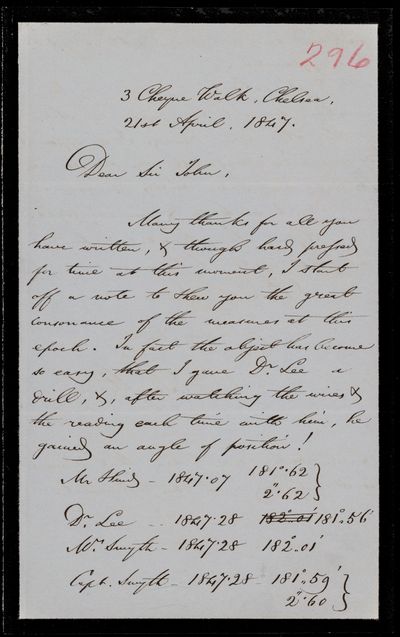 296
3 Cheyne Walk, Chelsea,
21st April, 1847.
Dear Sir John,
Many thanks for all you
have written, & though hard pressed
for time at this moment, I start
off a note to shew you the great
consonance of the measures at this
epoch. In fact the object has become
so easy, that I gave Dr Lee a
drill, &, after watching the wires &
the reading each time with him, he
gained an angle of position!
Mr Hind - 1847.07 181°.62
2".62
Dr Lee - 1847.28 182°.01' 181°.56'
Mrs Smyth - 1847.28 182°.01'
Capt. Smyth - 1847.28 - 181°.59'
2".60